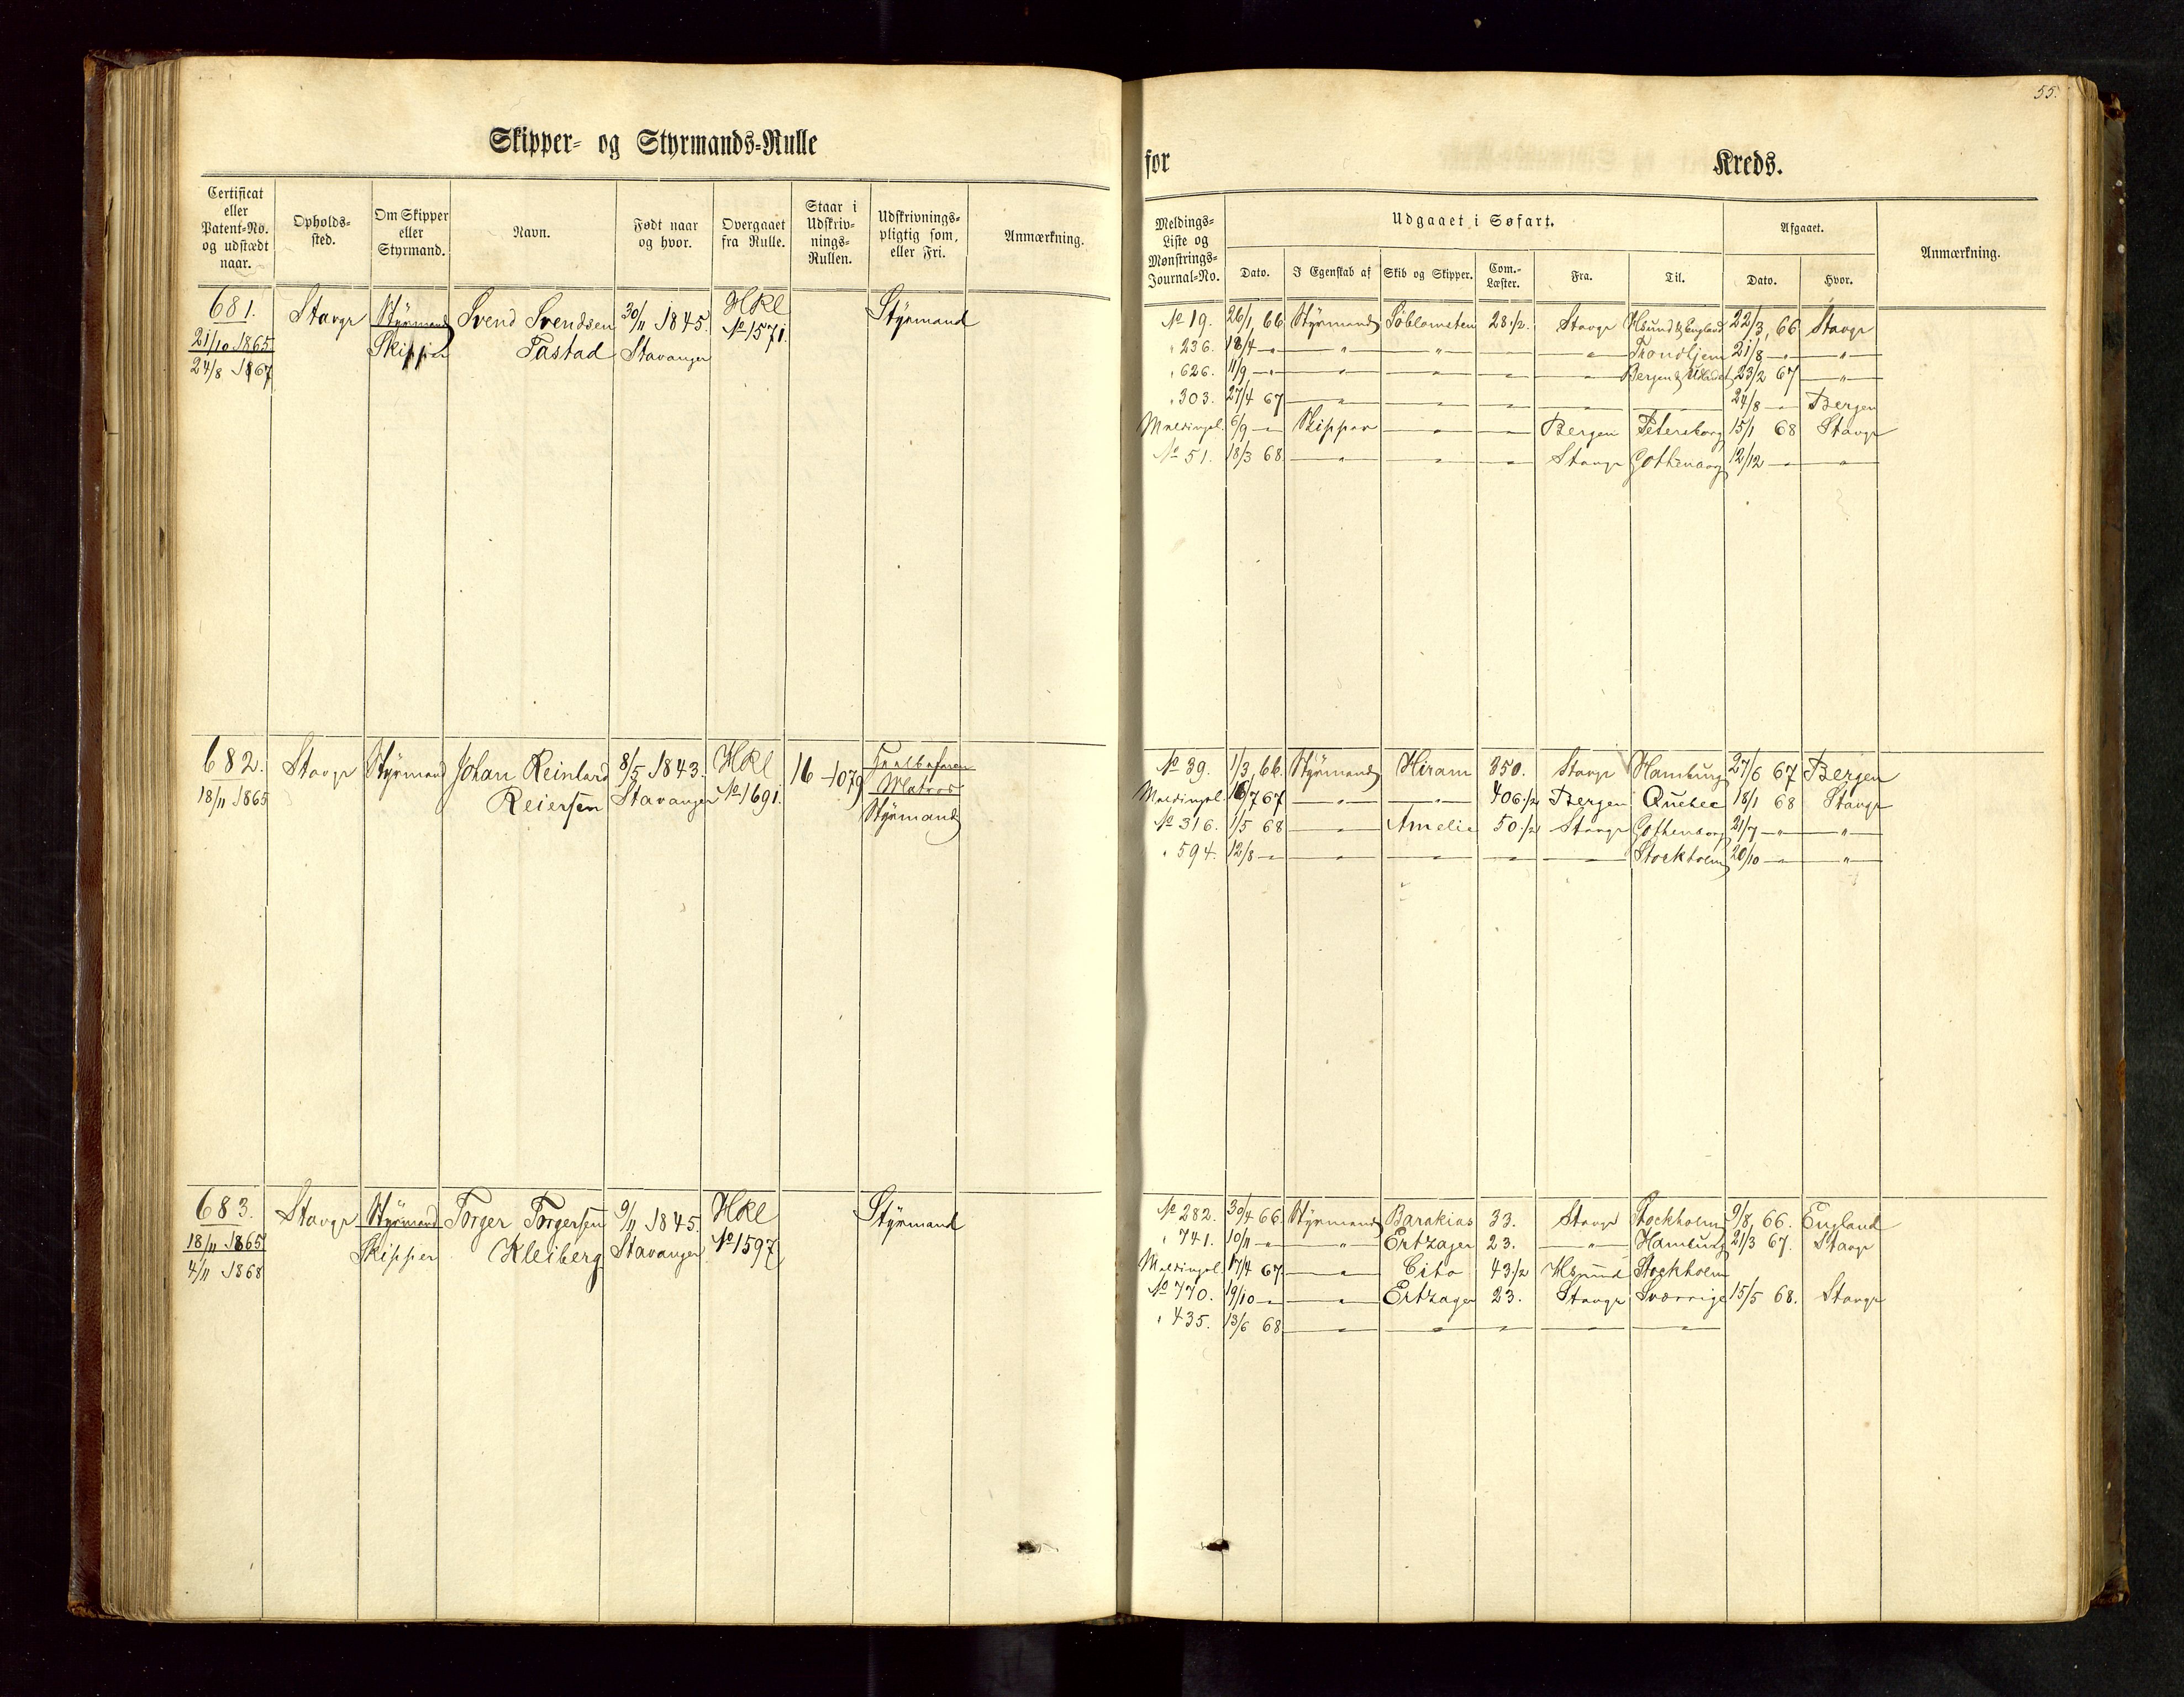 55.
Skipper- og Styrmands-Rulle
for Kreds.
Certificat eller Patent-No. og udstædt naar. | Opholds-sted. | Om Skipper eller Styrmand. | Navn. | Født naar og hvor. | Overgaaet fra Rulle. | Staar i Udskriv-nings-Rullen. | Udskrivnings-pligtig som, eller Fri. | Anmærkning.
Meldings-Liste og Mønstrings-Journal-No. | Udgaaet i Søfart. | Afgaaet. | Anmærkning.
Dato. | I Egenskab af | Skib og Skipper. | Com.-Læster. | Fra. | Til. | Dato. | Hvor.
681. | Stavgr | Styrmand | Svend Svendsen | 30/11 1845. | HRl | Styrmand
21/10 1865 | Skipper | Tastad | Stavanger | No 1571.
24/8 1867
No 19. | 26/1, 66 | Styrmand | Söblomsten | 28 1/2. | Stavgr | Hsund & England | 22/3, 66 | Stavgr
" 236. | 18/4 — " | — " — | — " — | — " — | — " — | Trondhjem | 21/8 — " — | — " —
" 626. | 11/9 — " | — " — | — " — | — " — | — " — | Bergen & Udlandet | 23/2 67 | — " —
" 303. | 27/4 67 | — " — | — " — | — " — | — " — | — " — | 24/8 — " — | Bergen
Meldingsl. | 6/9 — " | Skipper | — " — | — " — | Bergen | Petersborg | 15/1 68 | Stavgr
No 51. | 18/3 68 | — " — | — " — | — " — | Stavgr | Gothenborg | 12/12 — " — | — " —
682. | Stavgr | Styrmand | Johan Reinhard | 8/5 1843. | HRl | 16 - 1079 | Heelbefaren
18/11 1865 | Reiersen | Stavanger | No 1691. | Matros
Styrmand
No 39. | 1/3, 66. | Styrmand | Hiram | 350. | Stavgr | Hamburg | 27/6 67 | Bergen
Meldingsl. | 16/7 67 | — " — | — " — | 406 1/2 | Bergen | Quebec | 18/1 68 | Stavgr
No 316. | 1/5 68 | — " — | Amelie | 50 1/2 | Stavgr | Gothenborg | 21/7 — " — | — " —
" 594. | 12/8 — " | — " — | — " — | — " — | — " — | Stockholm | 20/10 — " — | — " —
683. | Stavgr | Styrmand | Torger Torgersen | 9/11 1845. | HRl | Styrmand
18/11 1865 | Skipper | Kleiberg | Stavanger | No 1597
4/11 1868
No 282. | 30/4 66. | Styrmand | Barakias | 33. | Stavgr | Stockholm | 9/8, 66. | England
" 741. | 10/11 — " | — " — | Ertzager | 23. | — " — | Hamburg | 21/3 67. | Stavgr
Meldingsl. | 17/4 67 | — " — | Cito | 43 1/2 | Hsund | Stockholm
No 770. | 19/10 — " | — " — | Ertzager | 23. | Stavgr | Sværrige | 15/5 68. | Stavgr
" 435. | 13/6 68 | — " — | — " — | — " — | — " — | — " —